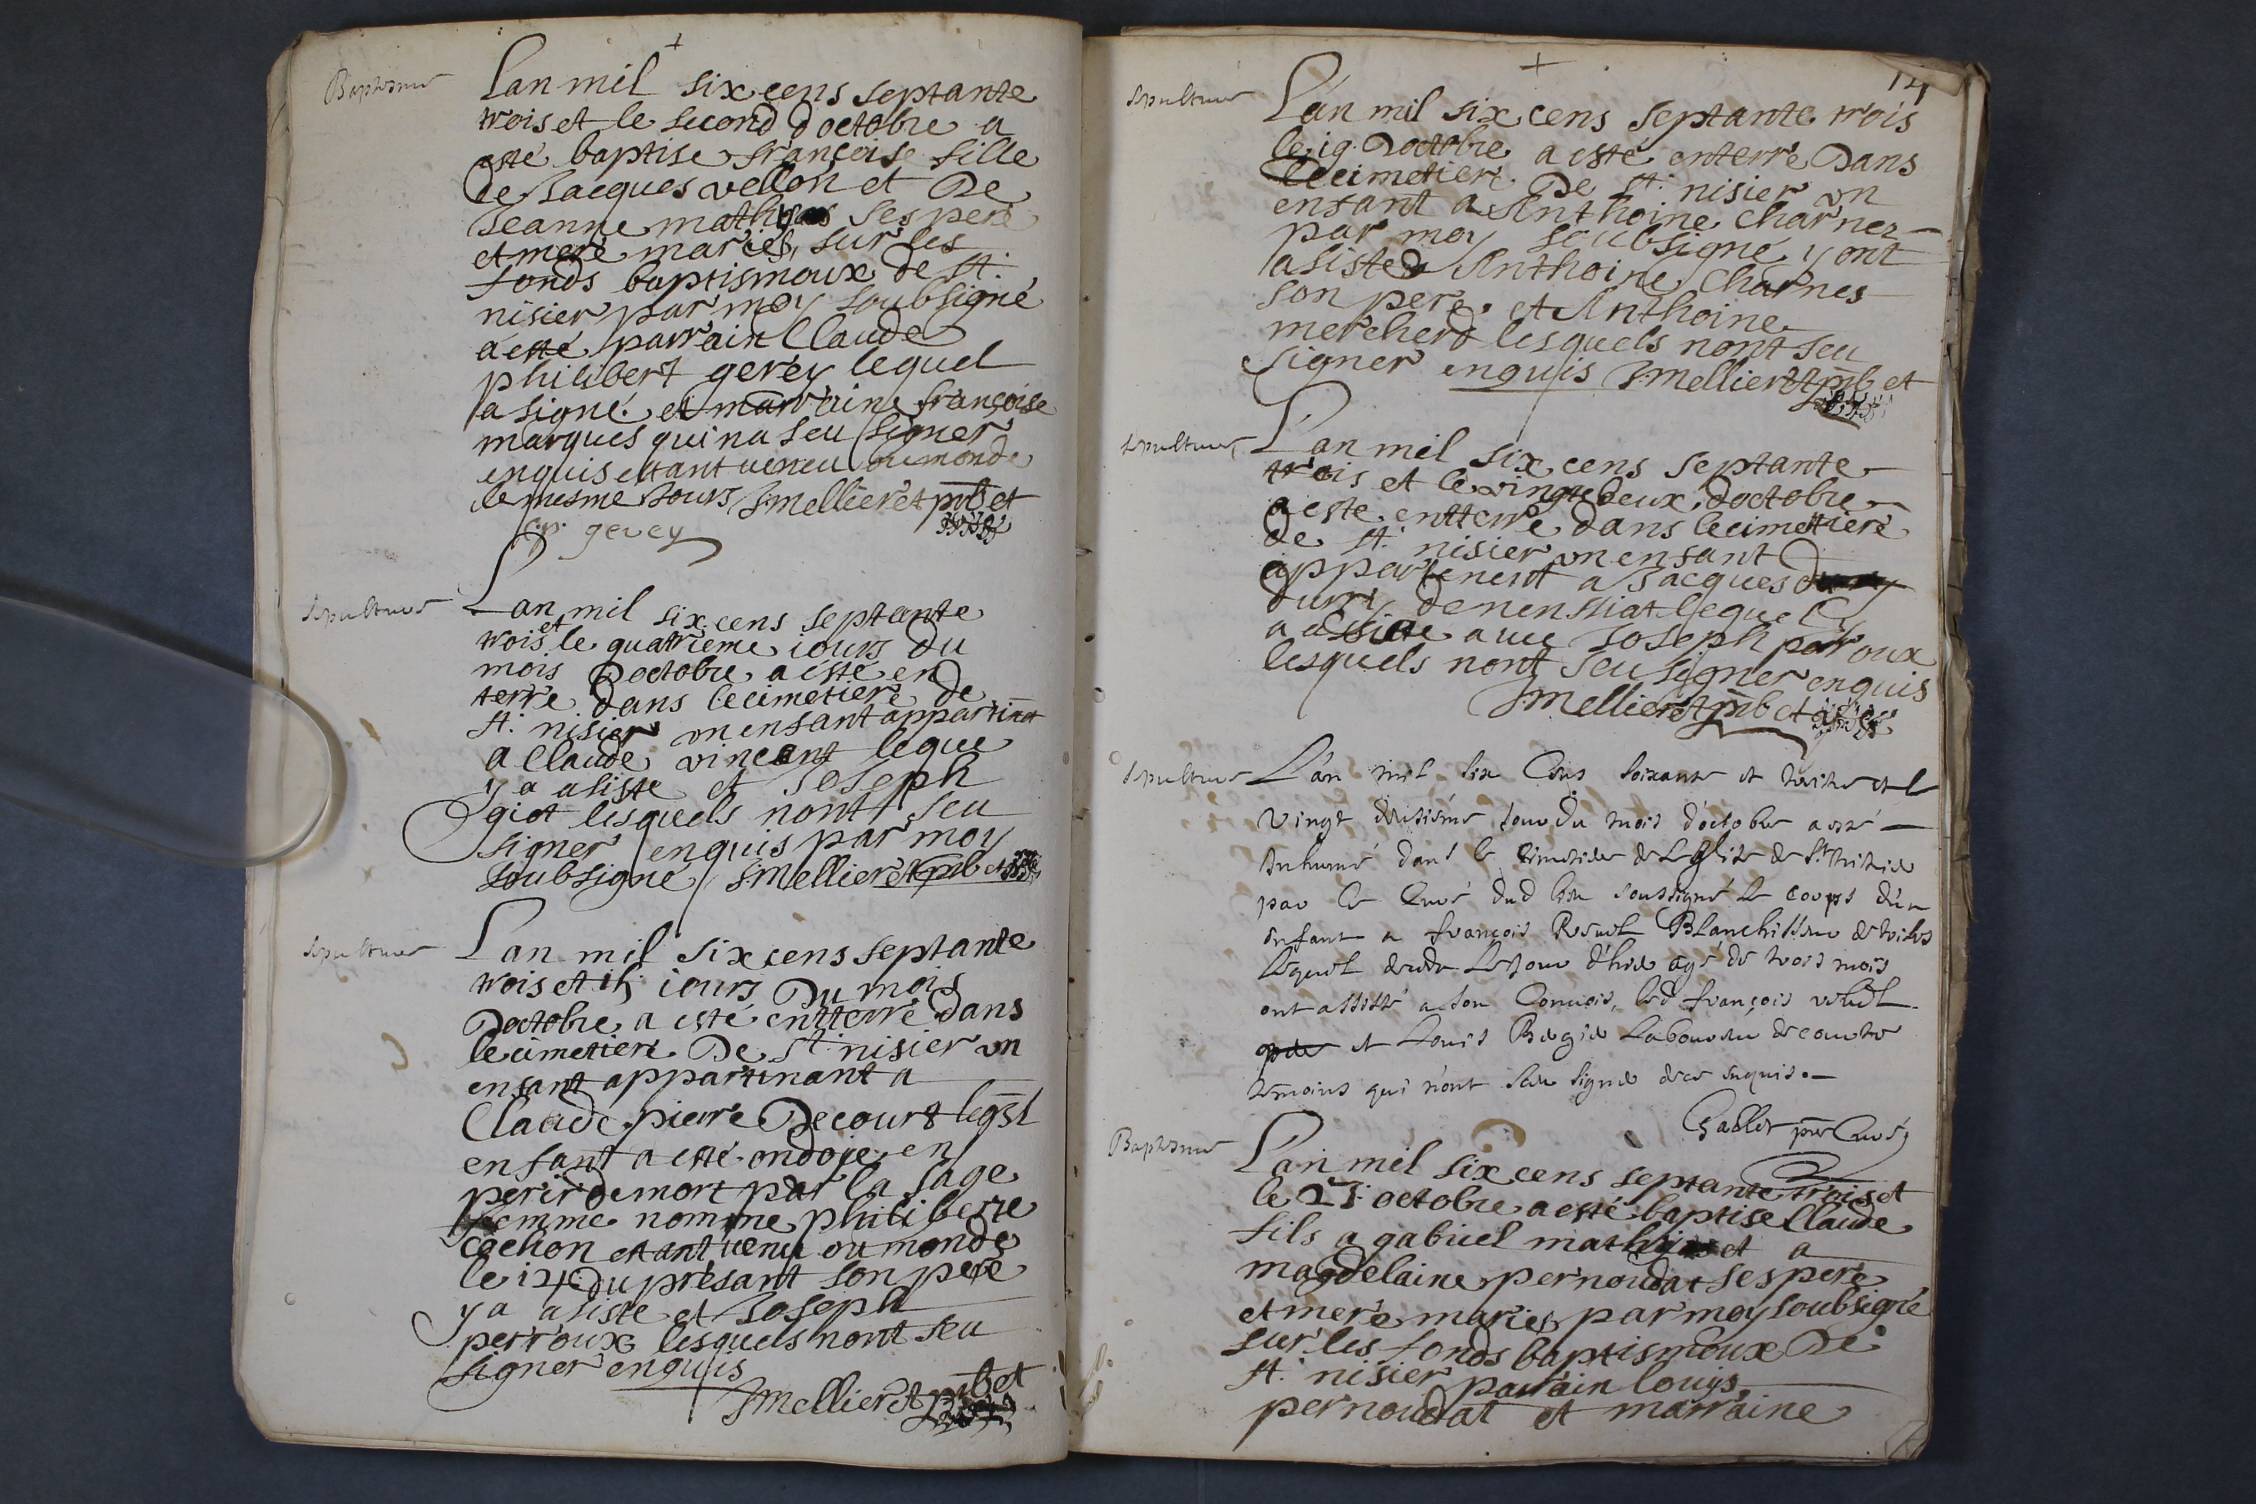 Baptesme
Lan mil six cens septante
trois et le second doctobre a
esté baptise françoise fille
de Jacques vellon et De
Jeanne mathy ses pere
et mere mariés, sur les
fonds baptismaux de st.
nisier par moy soubsigné
a esté parrain Claude
philibert gerey lequel
a signé et marraine françoise
marques qui na seu signer
enquis estant veneu au monde
le mesme Jours J mellieret pbr et
cp. gerey
sepulture
Lan mil six cens septante
trois et le quatrieme iours du
mois Doctobre a esté en
terre dans le cimetiere de
st. nisier un enfant appartinat
a Claude vincent leque
y a asiste et Joseph
giot lesquels nont seu
signer enquis par moy
soubsigné J Mellieret pbr et
sepulture
Lan mil six cens septante
trois et 15 iours Du mois
Doctobre a esté entterré dans
le cimetiere De st. nisier un
enfant appartinant a
Claude pierre Decourt leql
enfant a esté ondoie en
perir de mort par la sage
femme nomme philiberte
cochon estant venu au monde
le 14 du présant son pere
y a asiste et Joseph
perroux lesquels nont seu
signer enquis
J mellieret pbr et
14
sepulture
L'an mil six cens septante trois
le 19 Doctobre a esté enterré Dans
le cimetiere De st. nisier un
enfant a Anthoine Charnez
par moy soubsigné y ont
asiste Anthoine Charnes
son pere et Anthoine
mercherd lesquels nont seu
signer enquis J mellieret pbr et
sepulture
Lan mil six cens septante
trois et le vingtdeux doctobre
a este entterre dans le cimettiere
de st. nisier un enfant
appartenent a Jacques
durry de nenssiat lequel
a assiste avec Joseph pairoux
lesquels nont seu signer enquis
J Mellieret pbr et
sepulture
L'an mil six Cens soixante et treize et le
vingt Jour du mois d'octobre a esté
Inhumé dans le Cimetiere de L'Eglise de St Nisier
par le Curé dud lieu soussigné le corps d'un
enfant a françois Revel Blanchisseur de toiles
Lequel deceda Le Jour d'hier agé de trois mois
ont assisté a son Convois, led françois
et Louis Laboureur de
temoins qui n'ont sceu signer de ce enquis.
pre Curé
Baptesme
L'an mil six cens septante trois et
le 25 octobre a esté baptise Claude
fils a gabriel mathy et a
magdelaine pernoudat ses pere
et mere mariés par moy soubsigné
sur les fonds baptismaux De
st. nisier parrain louys
pernoudat et marraine